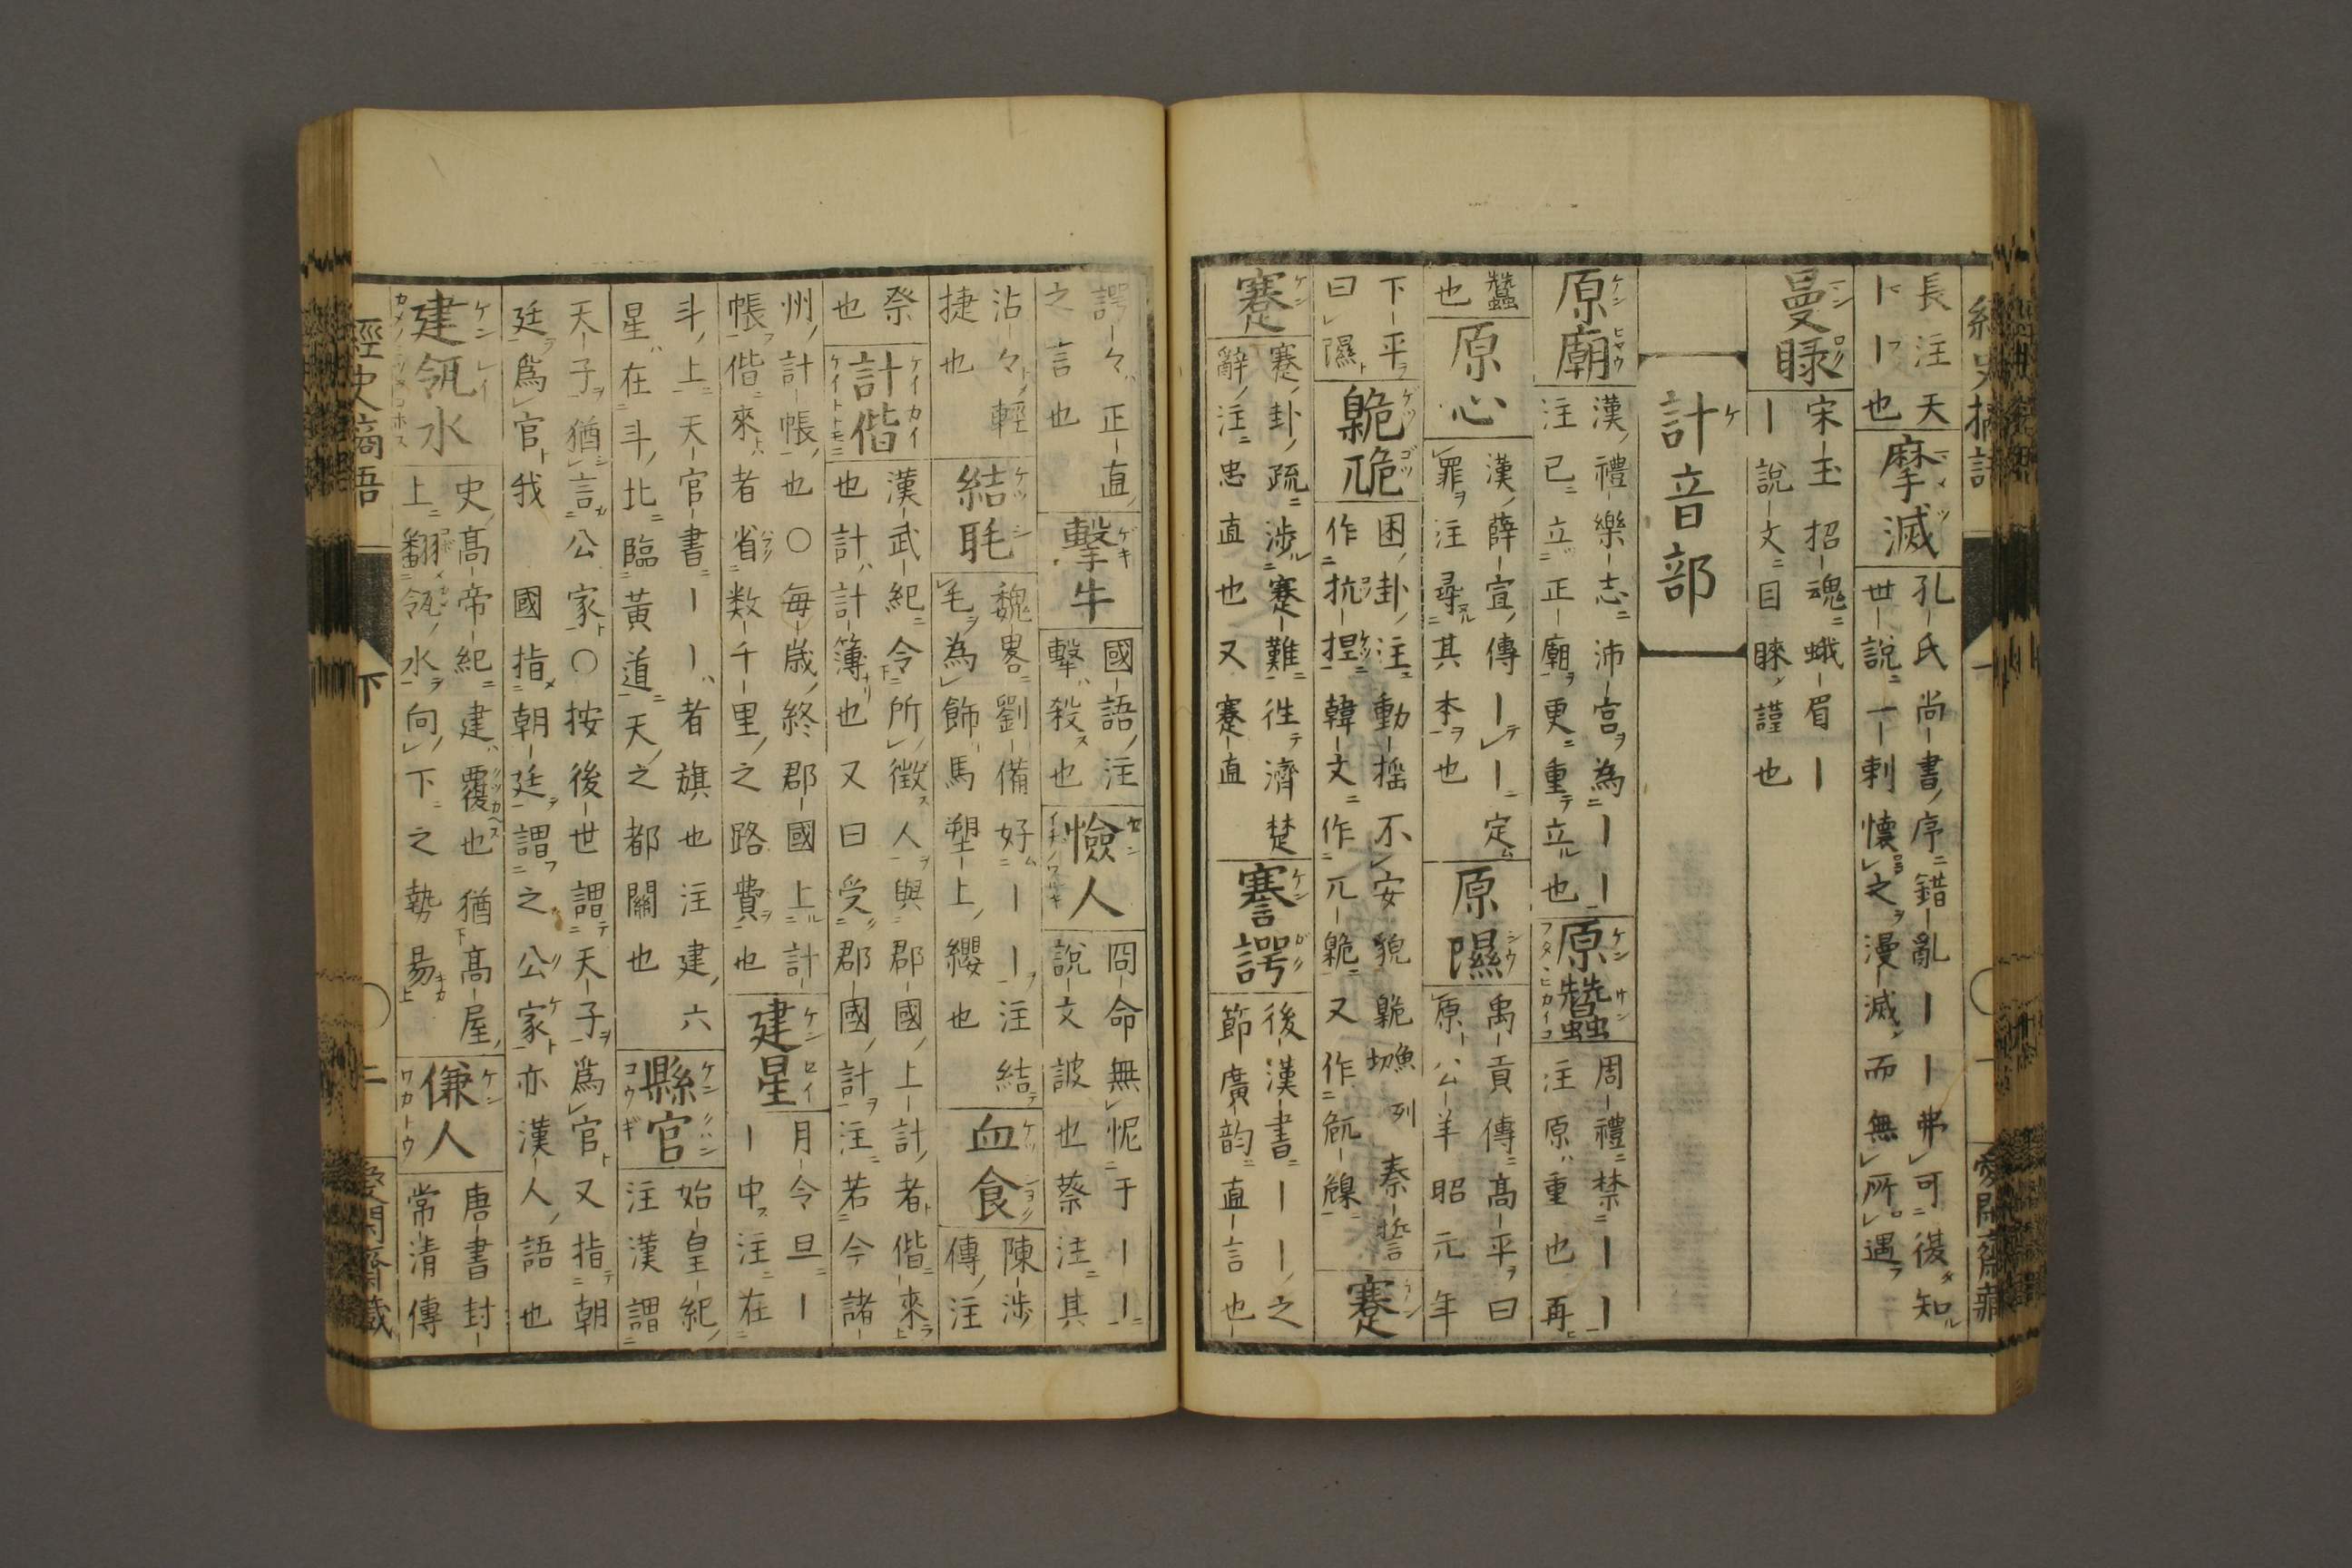 長注天
｜｜也
摩滅
孔氏尚書序錯亂｜｜弗可復知
世說一刺懷之漫滅而無所遇
曼睩
宋玉招魂蛾眉｜
｜說文目睞謹也
計音部
原廟
漢禮樂志沛宮為｜｜
注已立正廟更重立也
原蠶
周禮禁｜｜
注原重也再
蠶
也
原心
漢薛宣傳｜｜定
罪注尋其本也
原隰
禹貢傳高平曰
原公羊昭元年
下平
曰隰
臲卼
困卦注動揺不安貌臲魚列切秦誓
作杌揑韓文作兀臲又作
蹇
蹇
蹇卦疏涉蹇難徃濟楚
辭注忠直也又蹇直
謇諤
後漢書｜｜之
節廣韵直言也
諤々正直
之言也
擊牛
國語注
擊殺也
憸人
冏命無怩于｜｜
說文詖也蔡注其
沾々輕
捷也
結毦
魏畧劉備好｜｜注結
毛為飾馬塑上纓也
血食
陳涉
傳注
祭
也
計偕
漢武紀令所徵人與郡國上計者偕來
也計計簿也又曰受郡國計注若今諸
州計帳也〇毎歳終郡國上計
帳偕來者省数千里之路費也
建星
月令旦｜
｜中注在
斗上天官書｜｜者旗也注建六
星在斗北臨黃道天之都關也
縣官
始皇紀
注漢謂
天子猶言公家〇按後世謂天子爲官又指朝
廷爲官我國指朝廷謂之公家亦漢人語也
建瓴水
史髙帝紀建覆也猶髙屋
上翻瓴水向下之勢易
傔人
唐書封
常清傳
經史摘語
下
二
愛閒齋藏